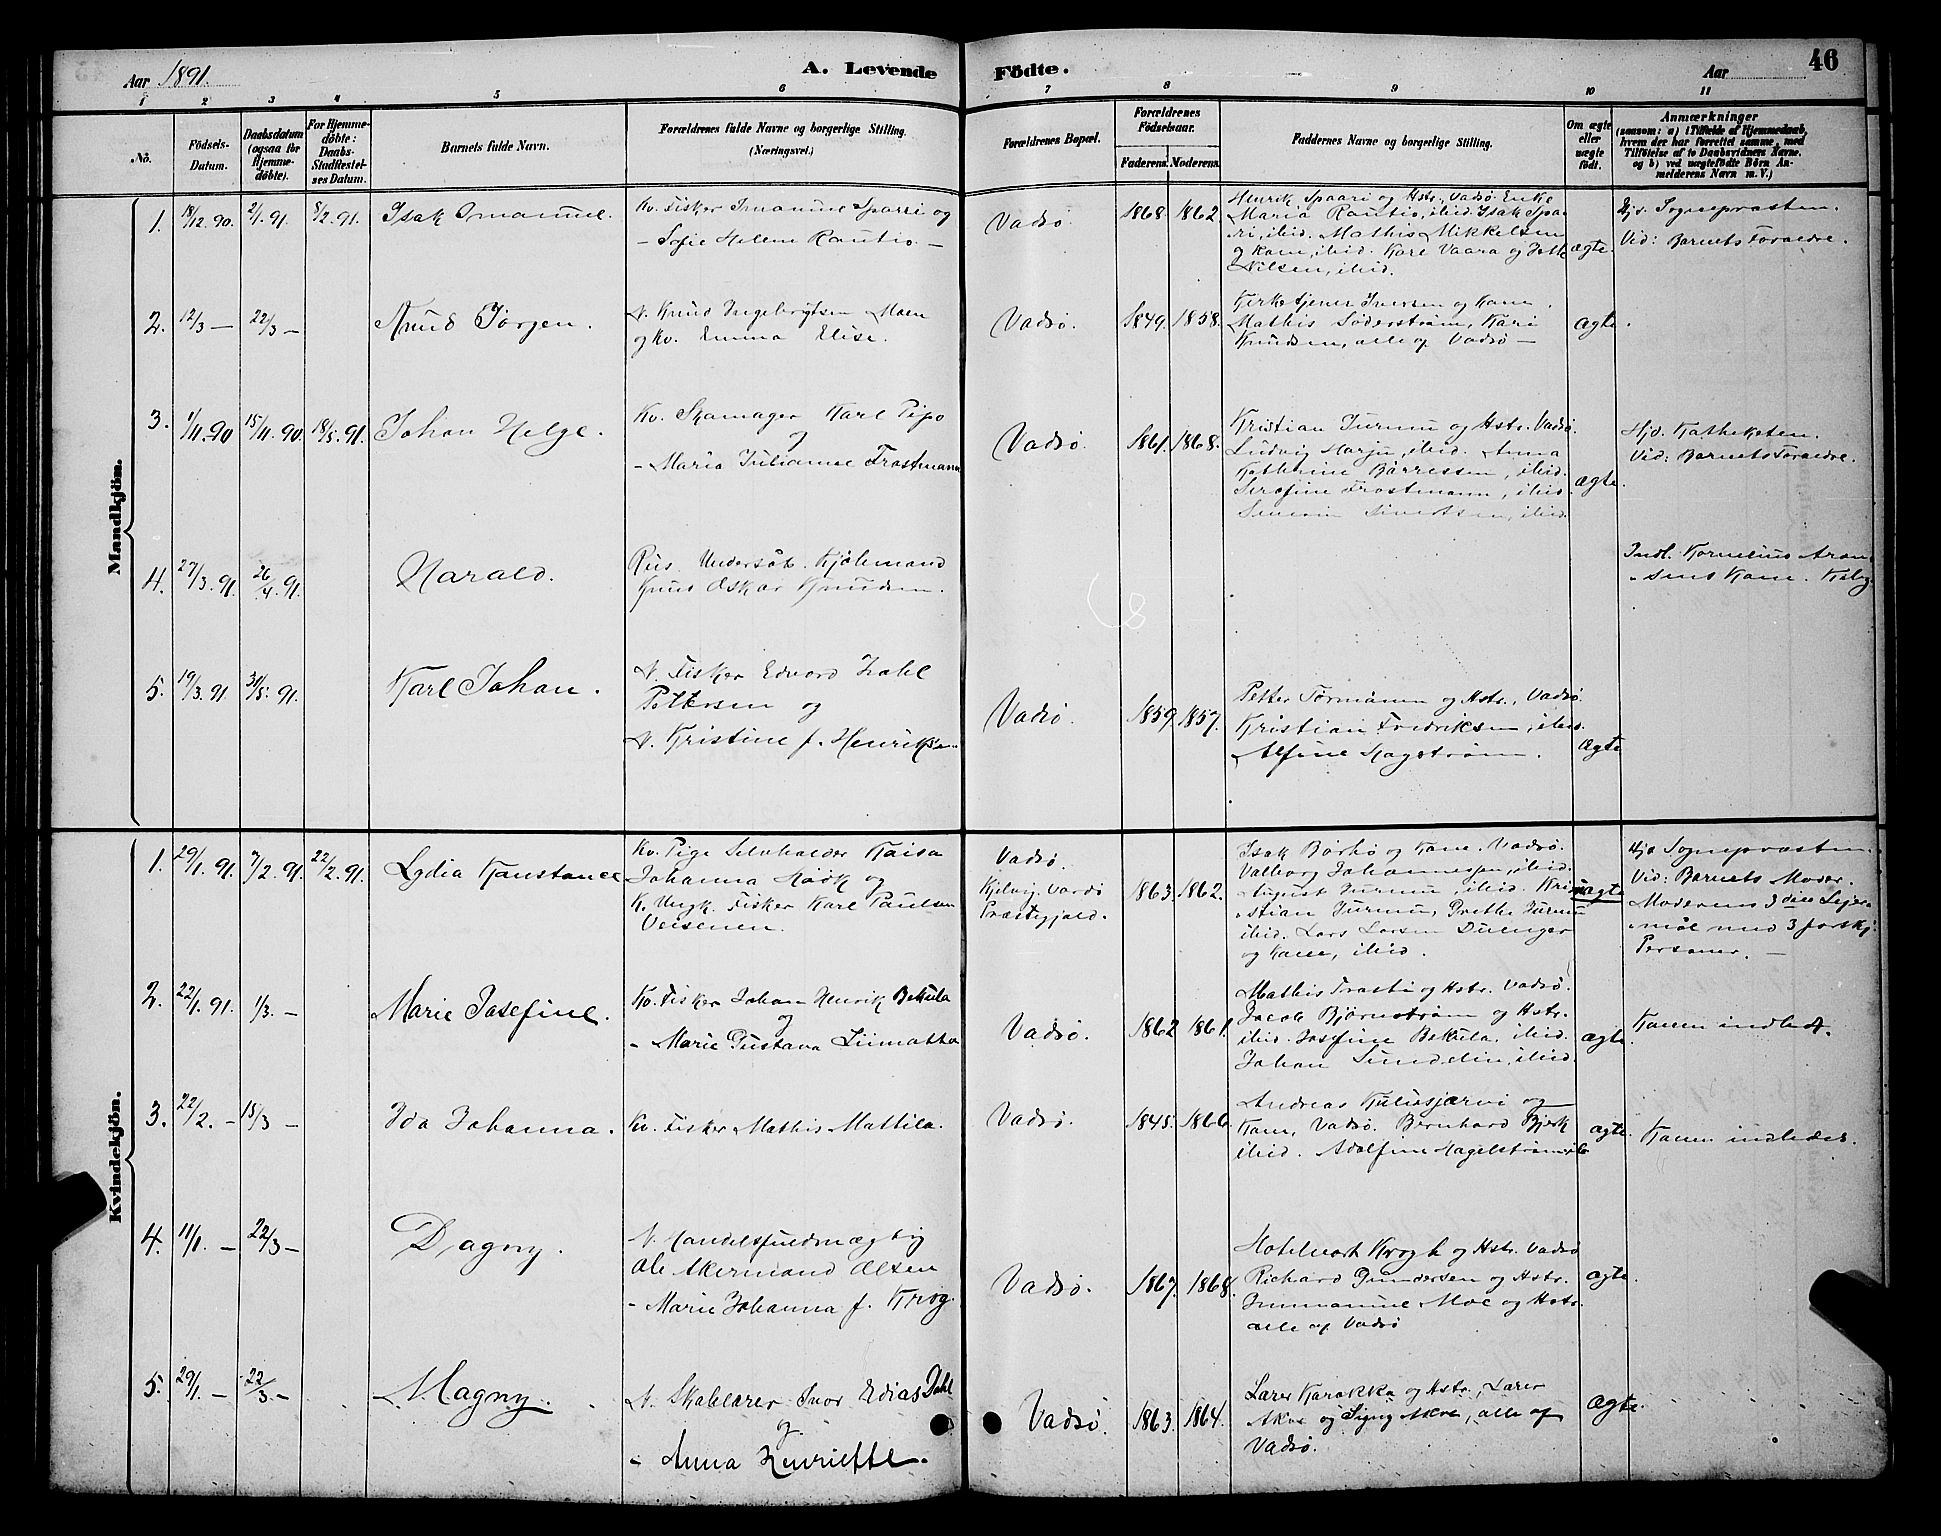 Aar 1891.
A. Levende Fødte.
Aar
46
1 2 3 4 5 6 7 8 9 10 11
No.
Fødsels-Datum.
Daabsdatum (ogsaa for Hjemmedøbte).
For Hjemmedøbte: Daabs-Stadfæstelses Datum.
Barnets fulde Navn.
Forældrenes fulde Navne og borgerlige Stilling.
(Næringsvei.)
Forældrenes Bopæl.
Forældrenes Fødselsaar.
Faderens. Moderens.
Faddernes Navne og borgerlige Stilling.
Om ægte eller uægte født.
Anmærkninger
(saasom: a) i Tilfælde af Hjemmedaab, hvem der har forrettet samme, med Tilføielse af to Daabsvidners Navne, og b) ved uægtefødte Børn Anmelderens Navn m. V.)
Mandkjön.
1. 18/12.90. 2/1.91. 8/2.91. Isak Imanuel.
Kv. Fisker Imanuel Sparri og
- Sofie Helene Rautio -
Vadsø. 1868. 1862.
Henrik Spaari og Hstr., Vadsø. Enke
Maria Rautio, ibid. Isak Spa-
ri, ibid. Mathis Mikkelsen
og Kone, ibid. Karl Vaara og
Nilsen, ibid.
ægte.
Hjd. Sognepræsten.
Vid: Barnets Forældre.
2. 12/3 - 22/3 - Knud Jørgen.
N. Knud Ingebrigtsen Moen
og Kv. Emma Elise.
Vadsø. 1849. 1858.
Kirketjener Iversen og Kone.
Mathis Söderstrøm, Kari
Knudsen, alle af Vadsø -
ægte.
3. 1/11.90 15/11.90 18/5.91. Johan Helge.
Kv. Skomager Karl Pipo
og
- Maria Julianne Frostmann
Vadsø. 1861. 1868.
Kristian Jurmu og Hstr. Vadsø.
Ludvig Harju, ibid. Anna
Katherine Børressen, ibid.
Serafine Frostmann, ibid.
Severin Sivertsen, ibid.
ægte.
Hjd. Katheketen.
Vid: Barnets Forældre.
4. 27/3.91. 26/4.91. Harald.
Rus. Undersåt. Kjøbmand
Knut Oskar Knudsen.
Indl. Kornelius Aron-
sens Kone.
5. 19/3.91. 31/5.91. Karl Johan.
N. Fisker Edvard Zahl
Pettersen og
N. Kristine f. Henriksen
Vadsø. 1859. 1857.
Petter Törmänen og Hstr., Vadsø.
Kristian Fredriksen, ibid.
Alfine Hagström.
ægte
Kvindekjön.
1. 29/1.91. 7/2.91. 22/2.91. Lydia Konstance
Kv. Pige Selvholder Kaisa
Johanna Høök og
K. Ungk. Fisker Karl Paulsen
Veisenen.
Vadsø.
Kjelvig. Vardø
Præstegjæld.
1863. 1862.
Isak Børbø og Kone. Vadsø.
Valborg Johannessen, ibid.
August Jurmu, ibid. Kri-
stian Jurmu, Grethe Jurmu
ibid. Lars Larsen Duenger
og Kone, ibid.
uægte
Hjd Sognepræsten.
Vid: Barnets Moder.
Moderens 3die Lejer-
mål med 3 forskj.
Personer. -
2. 22/1.91. 1/3. - Marie Josefine.
Kv. Fisker Johan Henrik Bekula
og
- Marie Gustava Liimatta
Vadsø. 1862 1861.
Mathis Frosti og Hstr. Vadsø.
Jacob Björnstrøm og Hstr.
ibid. Josefine Bekula, ibid.
Johan Sundelin, ibid.
ægte
Konen indledt.
3. 22/2. - 15/3 - Ida Johanna.
Kv. Fisker Mathis Mattila.
Vadsø. 1845. 1866.
Andreas Kuivasjærvi og
Kone, Vadsø. Bernhard Bjerk
ibid. Adolfine Hagelstrøm, ib
ægte.
Konen indledes.
4. 11/1. - 22/3 - Dagny.
N. Handelsfuldmægtig
Ole Akermand Olsen
- Marie Johanna f. Krog.
Vadsø. 1867. 1868.
Hotelvært Krogh og Hstr. Vadsø
Richard Gundersen og Hstr.
Immanuel Moe og Hstr.
alle af Vadsø
ægte.
5. 29/1. - 22/3 - Magny.
N. Skolelærer Ivor Edias Dahl
og
- Anna Henriette.
Vadsø. 1863. 1864.
Lærer Karakka og Hstr., Lærer
Akre og Signy Akre, alle af
Vadsø.
ægte.